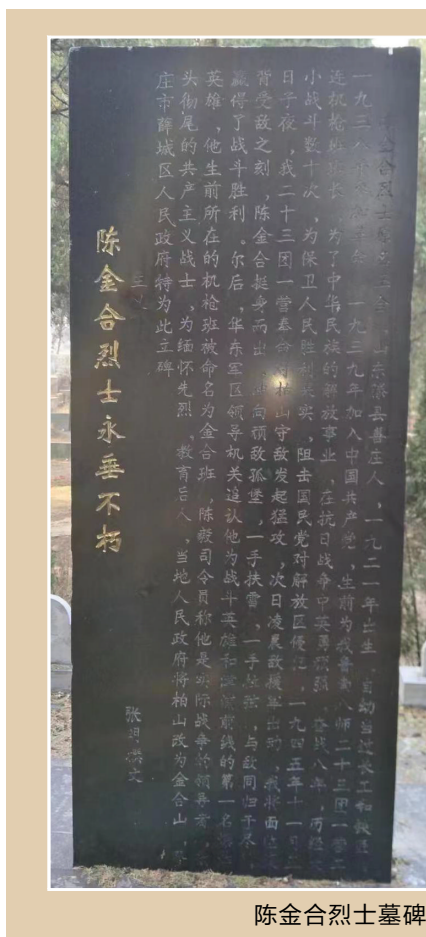 金合烈士 山东滕县善庄人，一九二一年出生，自幼当过长工和
一九三八年 一九三九年加入中国共产党，生前为我鲁南八师二十三团一营二
连机枪班班长。为了中华民族的解放事业，在抗日战争中英勇顽强，奋战八年，历经大
小战斗数十次，为保卫人民胜利果实，阻击国民党对解放区侵犯，一九四五年十一月
日子夜，我二十三团一营奉命对柏山守敌发起猛攻，次日凌晨敌援军出动，我将面临
背受敌之刻，陈金合挺身而出 向顽敌孤堡，一手扶雷，一手拉弦，与敌同归于尽
赢得了战斗胜利。尔后，华东军区领导机关追认他为战斗英雄和 前线的第一名
英雄，他生前所在的机枪班被命名为金合班，陈毅司令员称他是 际战争的领导者，
头彻尾的共产主义战士，为缅怀先烈，教育后人，当地人民政府将柏山改为金合山，
庄市薛城区人民政府特为此立碑
陈金合烈士永垂不朽
陈金合烈士墓碑